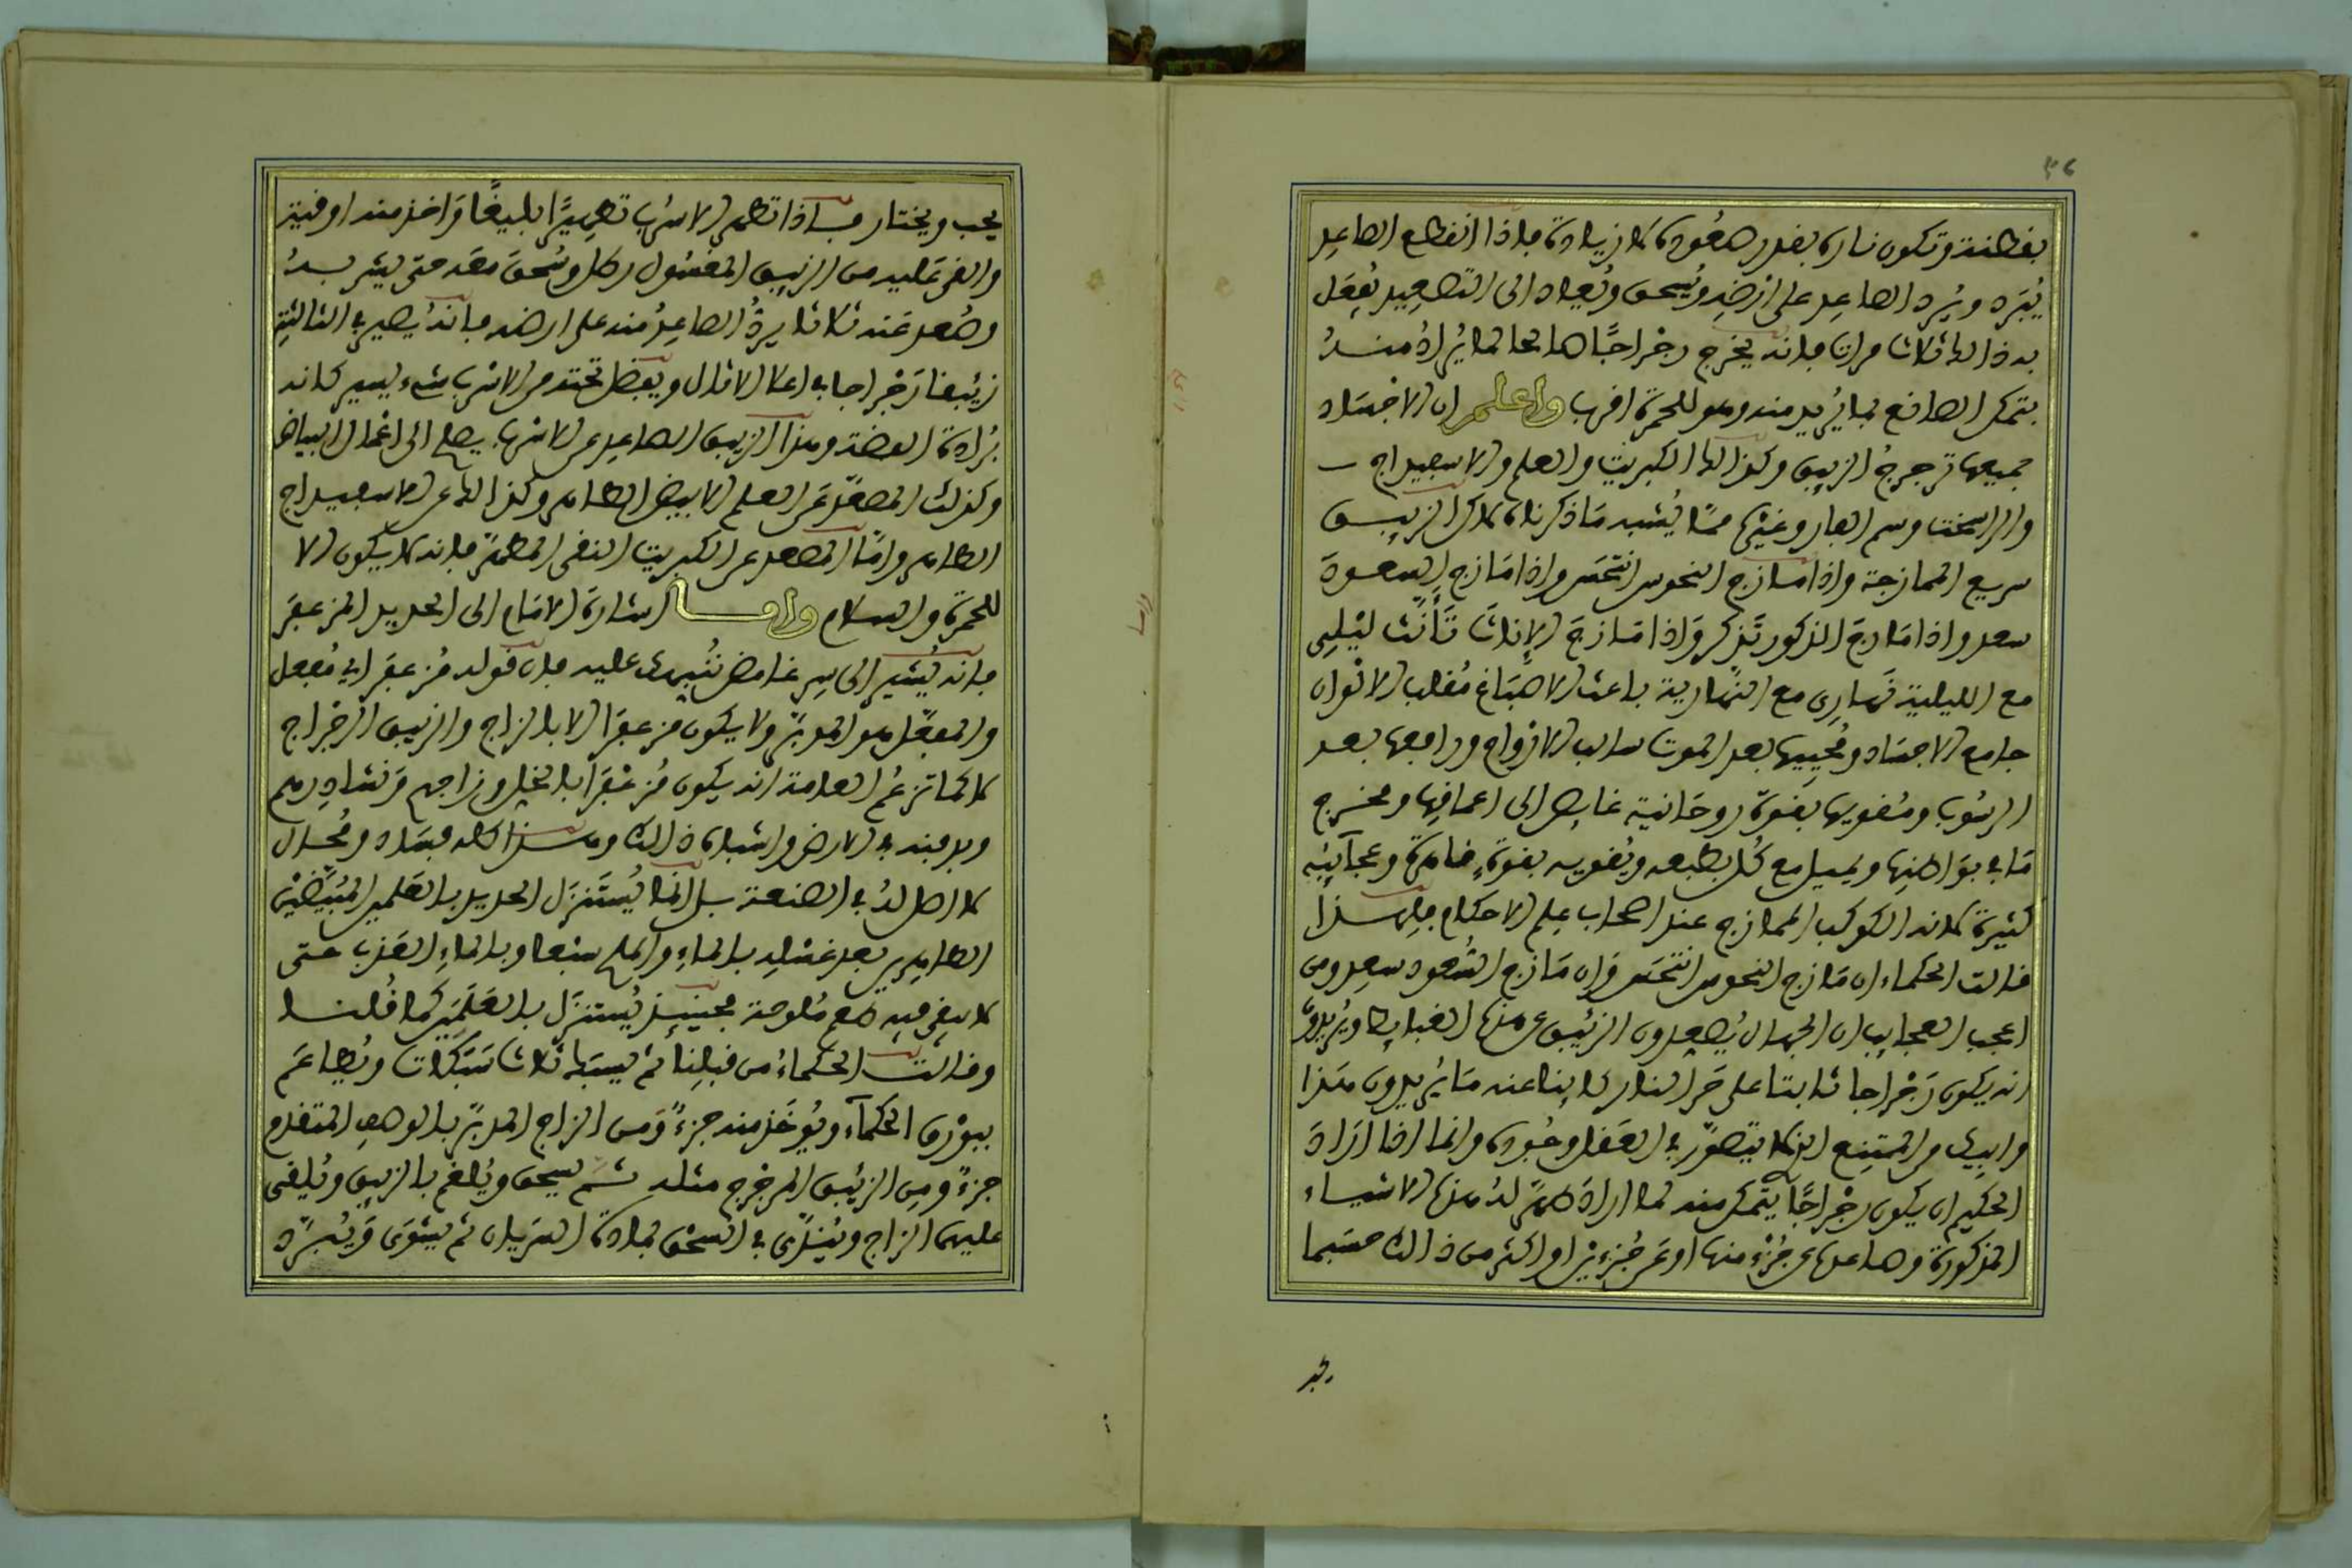 ٣٦
بفطنة وتكون ناره بقدر صعوده لا زيادة فاذا انقطع الصاعد
يُبرد ويُرد الصاعد على ارضه ويُسحق ويُعاد الى التصعيد يُفعل
به ذالك ثلاث مرات فانه يخرج رجراجًا صالحا لما يُراد منه
يتمكن الصانع بما يُريد منه وهو للحمرة اقرب واعلم ان الاجساد
جميعها ترجرج الزيبق وكذالك الكبريت والعلم والاسبيداج
والراسخت وسم الفار وغيرها ممّا يُشبه ما ذكرناه لان الزيبق
سريع الممازجة واذا مازج النحوس انتحس واذا مازج السعود
سعد واذا مازج الذكور تذكر واذا مازج الاناث تأنث ليلى
مع الليلية نهارى مع النهارية باعث الاصباغ مُقلب الالوان
جامع الاجساد ومُحييها بعد الموت سالب الارواح وراجعها بعد
الرسوب ومُقويها بقوة روحانية غايص الى اعماقها ومخرج
ما في بواطنها ويميل مع كل بطبعه ويُقويه بقوة خاصة وعجآئبه
كثيرة لانه الكوكب الممازج عند اصحاب علم الاحكام فلهذا
قالت الحكماء ان مازج النحوس انتحس وان مازج السعود سعد ومن
اعجب العجايب ان الجهال يُصعدون الزئبق عن هذه القبايط ويُريدون
انه يكون رجراجا ثابتا على حر النار كاينا عنه ما يُريدون هذا
وابيك من الممتنع الذى لا يتصور في العقل وجوده وانما اذا اراد
الحكيم ان يكون رجراجًا يتمكن منه لما اراد طهر له هذه الاشياء
المذكورة وصاعدها عن جُزء منها او عن جُزءين او اكثر من ذالك حسبما
يجب
يجب ويختار فاذا تطهر الاسرب تطهيرًا بليغًا واخذ منه اوقية
والقى عليه من الزيبق المغسول رطل وسُحق معه حتى يتشربه
وصُعد عنه ثلاثا يردُّ الصاعدُ منه على ارضه فانه يصير في الثالثة
زئبقا رجراجا في اعلا الاثال ويفضل تحته من الاسرب شيء يسير كانه
بُرادة الفضة وهذا الزيبق الصاعد عن الاسرب يصلح الى اعمال البياض
وكذلك المصعّد عن العلم الابيض الطاهر وكذالك عن الاسبيداج
الطاهر وامّا المصعد عن الكبريت النقى المطهّر فانه لا يكون الا
للحمرة والسلام واما اشارة الامام الى الحديد المزعفر
فانه يُشير الى سر غامض نُنبهك عليه فان قوله مُزعفر اي مُفعل
والمفعّل هو المدبّر ولا يكون مزعفرا الا بالزاج والزيبق الرجراج
لا كما تزعُم العامة انه يكون مُزعفرا بالخل وزاجهم ونشادرهم
وبدفنه في الارض واشباه ذالك وهذا كله فساد ومُحال
لا اصل له في الصنعة بل انما يُستنزل الحديد بالعلمين المُبيّضين
الطاهرين بعد غسله بالماء والملح سبعا وبالماء العذب حتى
لا يبقى فيه طعم مُلوحة فحينيذ يُستنزل بالعلمين كما قُلنا
وقالت الحكماءُ من قبلنا ثم يسبك ثلاث سبكات ويُطاعم
ببورق الحكمآء ويُوخذ منه جزءٌ ومن الزاج المدبّر بالوصف المتقدم
جزءٌ ومن الزئبق المرجرج مثله ثم يسحق ويُلغم بالزيبق ويُلقى
عليهم الزاج ويُندّى في السحق بمادة السريان ثم يشوى ويُبرّد